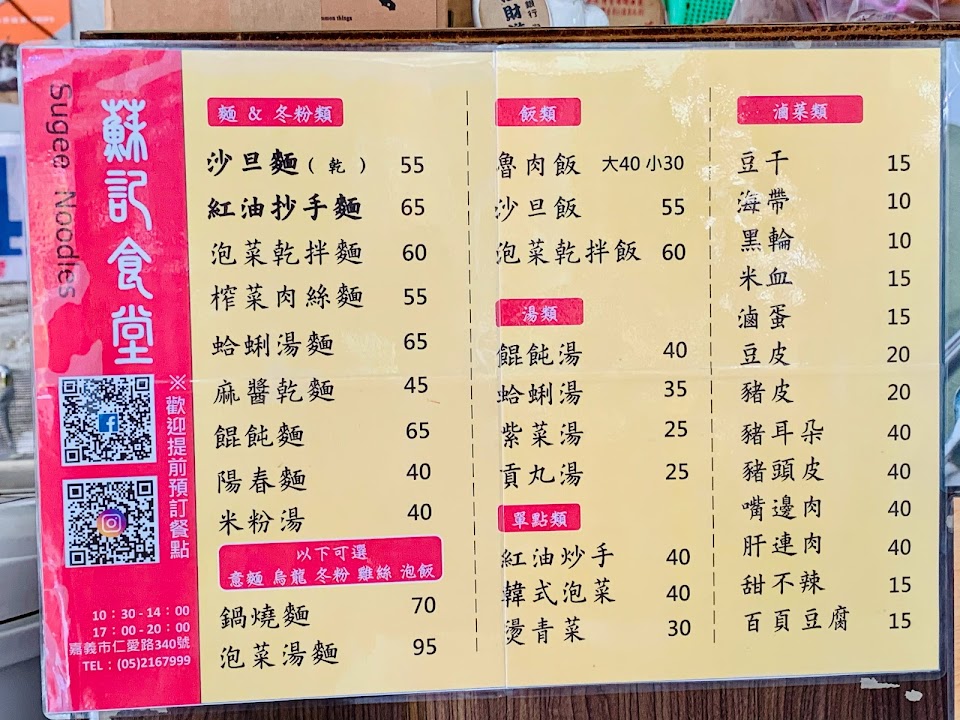 Sugee Noodles
蘇記食堂
※歡迎提前預訂餐點
10：30-14：00
17：00-20：00
嘉義市仁愛路340號
TEL：(05)2167999
麵 & 冬粉類
沙旦麵(乾) 55
紅油抄手麵 65
泡菜乾拌麵 60
榨菜肉絲麵 55
蛤蜊湯麵 65
麻醬乾麵 45
餛飩麵 65
陽春麵 40
米粉湯 40
以下可選
意麵 烏龍 冬粉 雞絲 泡飯
鍋燒麵 70
泡菜湯麵 95
飯類
魯肉飯 大40 小30
沙旦飯 55
泡菜乾拌飯 60
湯類
餛飩湯 40
蛤蜊湯 35
紫菜湯 25
貢丸湯 25
單點類
紅油炒手 40
韓式泡菜 40
燙青菜 30
滷菜類
豆干 15
海帶 10
黑輪 10
米血 15
滷蛋 15
豆皮 20
豬皮 20
豬耳朵 40
豬頭皮 40
嘴邊肉 40
肝連肉 40
甜不辣 15
百頁豆腐 15